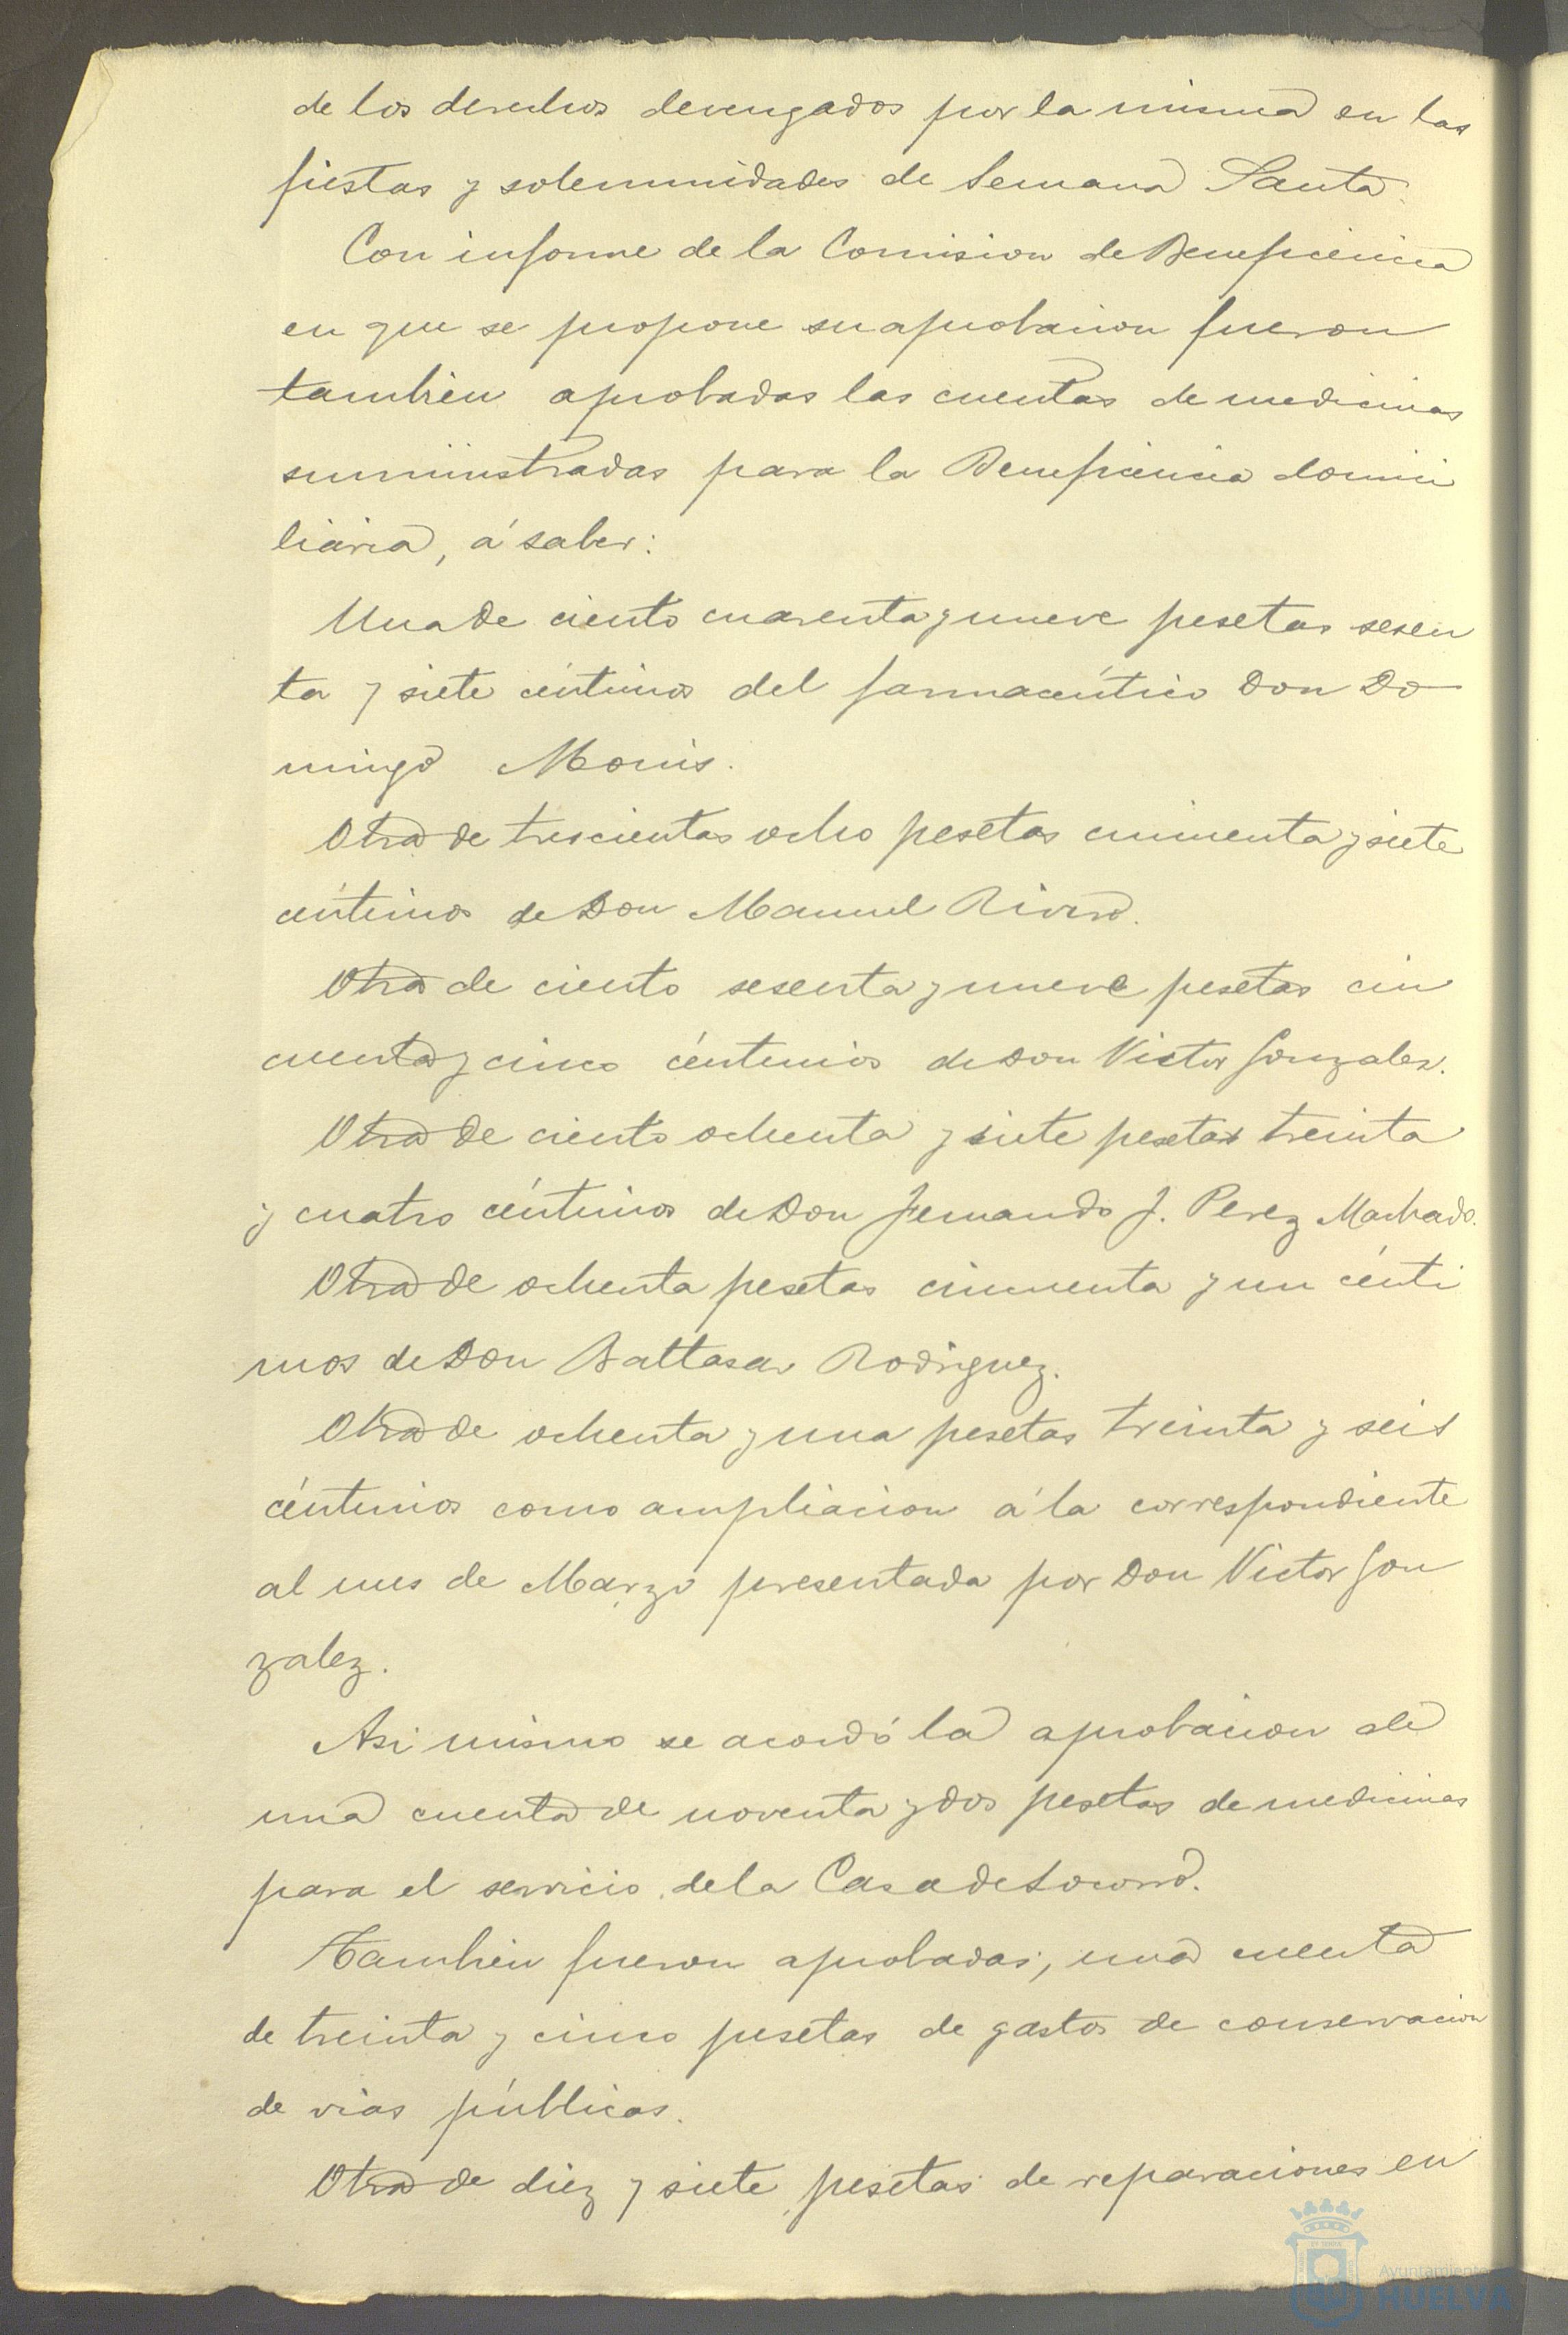 de los derechos devengados por la misma en las
fiestas y solemnidades de Semana Santa.
Con informe de la Comision de Beneficencia
en que se propone su aprobacion fueron
tambien aprobadas las cuentas de medicinas
suministradas para la Beneficencia domici
liaria, á saber:
Una de ciento cuarenta y nueve pesetas sesen
ta y siete céntimos del farmacéutico Don Do
mingo Monis.
Otra de trescientas ocho pesetas cincuenta y siete
céntimos de Don Manuel Rivero.
Otra de ciento sesenta y nueve pesetas cin
cuenta y cinco céntimos de Don Victor Gonzalez.
Otra de ciento ochenta y siete pesetas treinta
y cuatro céntimos de Don Fernando J. Perez Machado.
Otra de ochenta pesetas cincuenta y un cénti
mos de Don Baltasar Rodriguez.
Otra de ochenta y una pesetas treinta y seis
céntimos como ampliacion á la correspondiente
al mes de Marzo presentada por Don Victor Gon
zalez.
Asi mismo se acordó la aprobacion de
una cuenta de noventa y dos pesetas de medicinas
para el servicio de la Casa de Socorro.
Tambien fueron aprobadas; una cuenta
de treinta y cinco pesetas de gastos de conservacion
de vias públicas.
Otra de diez y siete pesetas de reparaciones en
Ayuntamiento
HUELVA